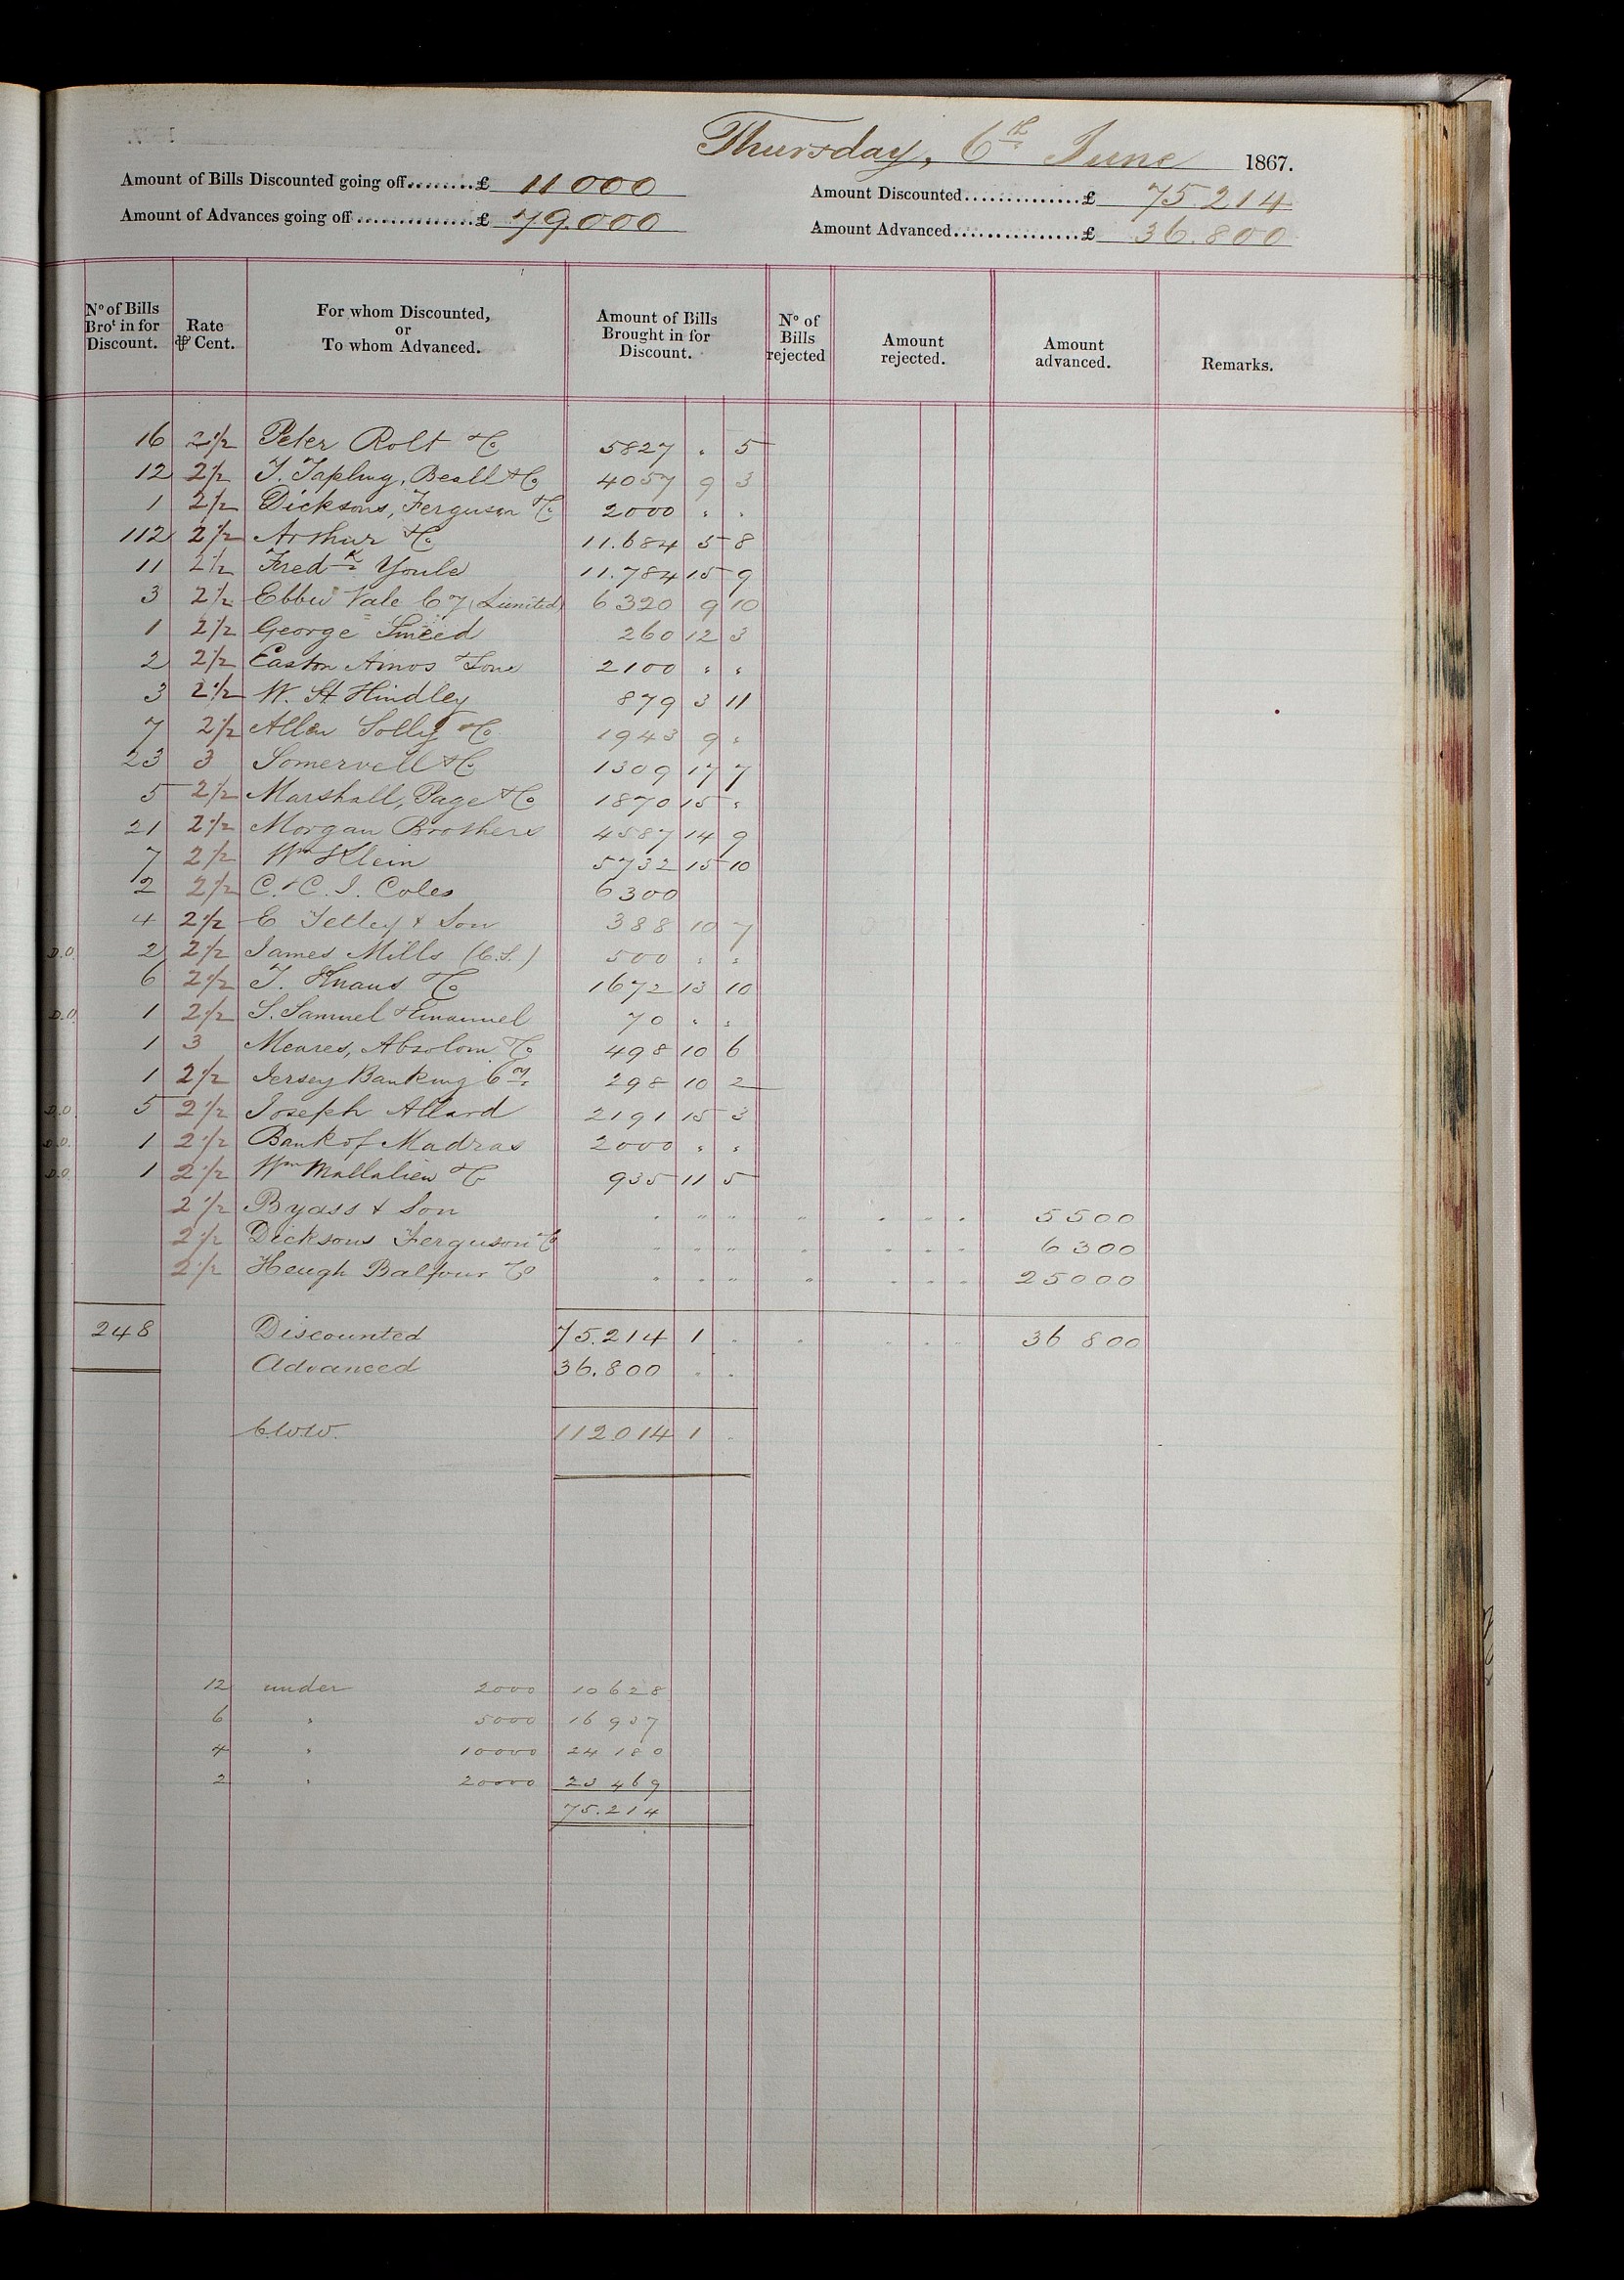 Thursday, 6th June 1867.
Amount of Bills Discounted going off........£ 11000
Amount Discounted..............£ 75.214
Amount of Advances going off...............£ 79.000
Amount Advanced................£ 36.800
No of Bills Brot in for Discount. Rate ⅌ Cent. For whom Discounted, or To whom Advanced. Amount of Bills Brought in for Discount. No of Bills rejected Amount rejected. Amount advanced. Remarks.
16 2½ Peter Rolt & Co 5827 . 5
12 2½ T. Tapling, Beall & Co 4057 9 3
1 2½ Dicksons, Ferguson & Co 2000 " "
112 2½ Arthur & Co 11.684 5 8
11 2½ Fredk Youle 11.784 15 9
3 2½ Ebbw Vale Coy (Limited) 6320 9 10
1 2½ George Smeed 260 12 3
2 2½ Easton Amos & Sons 2100 " "
3 2½ W. H Hindley 879 3 11
7 2½ Allen Solly & Co 1943 9 "
23 3 Somervell & Co 1309 17 7
5 2½ Marshall, Page & Co 1870 15 "
21 2½ Morgan Brothers 4587 14 9
7 2½ Wm Klein 5732 15 10
2 2½ C. & C. J. Coles 6300
4 2½ E Tetley & Son 388 10 7
D.O. 2 2½ James Mills (C.S.) 500 " "
6 2½ T. Knaus & Co 1672 13 10
D.O. 1 2½ S. Samuel & Emanuel 70 " "
1 3 Meares, Absolom & Co 498 10 6
1 2½ Jersey Banking Coy. 298 10 2
D.O. 5 2½ Joseph Allard 2191 15 3
D.O. 1 2½ Bank of Madras 2000 " "
D.O. 1 2½ Wm Mallalieu & Co 935 11 5
2½ Byass & Son . " " " . " . 5500
2½ Dicksons Ferguson & Co " . " " . . . 6300
2½ Heugh Balfour & Co " . " " . . . 25000
248 Discounted 75.214 1 . . . . . 36 800
Advanced 36.800 . .
C.W.W. 112014 1 .
12 under 2000 10628
6 " 5000 16937
4 " 10000 24180
2 " 20000 23469
75.214